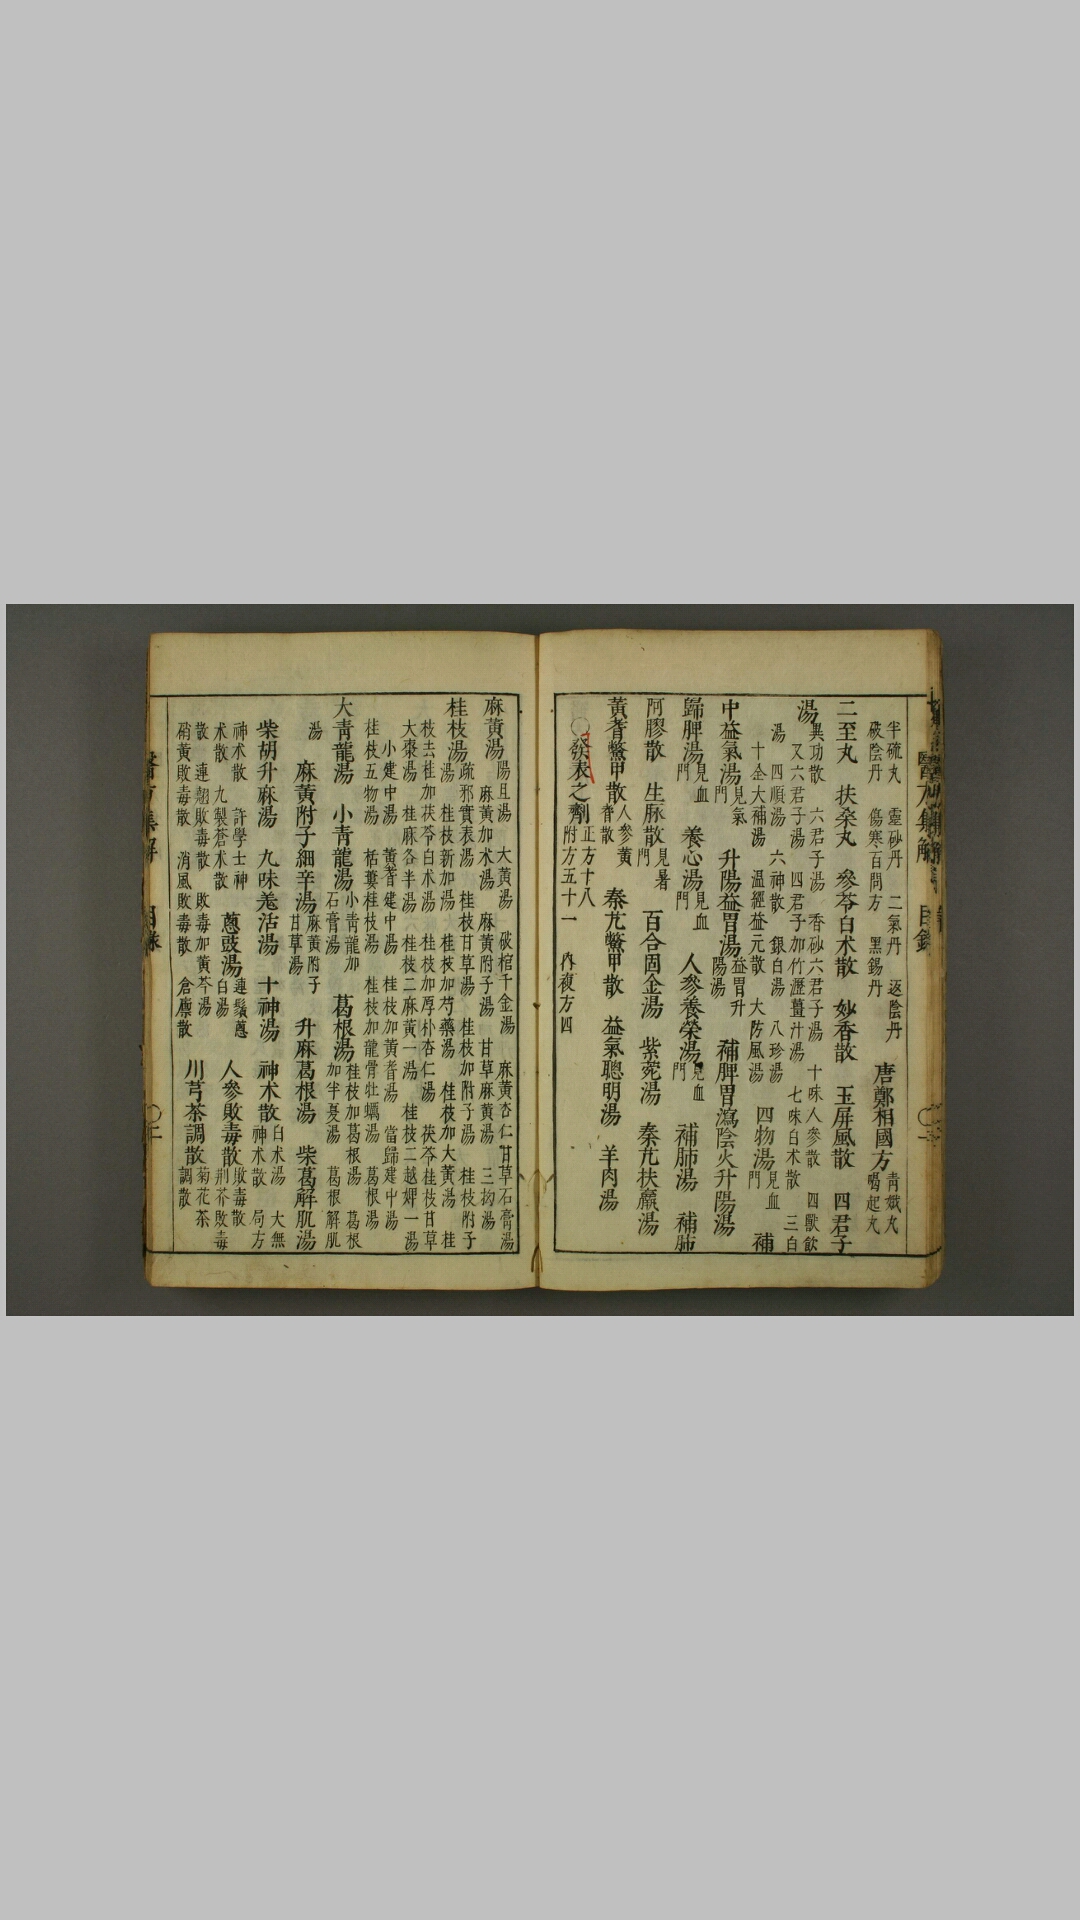 半硫丸　靈砂丹　二氣丹　返陰丹
破陰丹　傷寒百問方　黑錫丹
唐鄭相國方
青娥丸
喝起丸
二至丸　扶桑丸　參苓白术散　妙香散　玉屏風散　四君子
湯
異功散　六君子湯　香砂六君子湯　十味人參散　四獸飲
又六君子湯　四君子加竹瀝薑汁湯　七味白术散　三白
湯　四順湯　六神散　銀白湯　八珍湯
十全大補湯　溫經益元散　大防風湯
四物湯
見血
門
補
中益氣湯
見氣
門
升陽益胃湯
益胃升
陽湯
補脾胃瀉陰火升陽湯
歸脾湯
見血
門
養心湯
見血
門
人參養榮湯
見血
門
補肺湯　補肺
阿膠散　生脉散
見暑
門
百合固金湯　紫菀湯　秦艽扶羸湯
黃耆鱉甲散
人參黃
耆散
秦艽鱉甲散　益氣聰明湯　羊肉湯
○發表之劑
正方十八
附方五十一　內複方四
麻黃湯
陽旦湯　大黃湯　破棺千金湯　麻黃杏仁甘草石膏湯
麻黃加术湯　麻黃附子湯　甘草麻黃湯　三拗湯
桂枝湯
疏邪實表湯　桂枝甘草湯　桂枝加附子湯　桂枝附子
湯　桂枝新加湯　桂枝加芍藥湯　桂枝加大黃湯　桂
枝去桂加茯苓白术湯　桂枝加厚朴杏仁湯　茯苓桂枝甘草
大棗湯　桂麻各半湯　桂枝二麻黃一湯　桂枝二越婢一湯
小建中湯　黃耆建中湯　桂枝加黃耆湯　當歸建中湯
桂枝五物湯　栝蔞桂枝湯　桂枝加龍骨牡蠣湯　葛根湯
大青龍湯　小青龍湯
小青龍加
石膏湯
葛根湯
桂枝加葛根湯　葛根
加半夏湯　葛根解肌
湯
麻黃附子細辛湯
麻黃附子
甘草湯
升麻葛根湯　柴葛解肌湯
柴胡升麻湯　九味羌活湯　十神湯　神术散
白术湯　大無
神术散　局方
神术散　許學士神
术散　九製蒼术散
蔥豉湯
連鬚蔥
白湯
人參敗毒散
敗毒散
荆芥敗毒
散　連翹敗毒散　敗毒加黃芩湯
硝黃敗毒散　消風敗毒散　倉廩散
川芎茶調散
菊花茶
調散